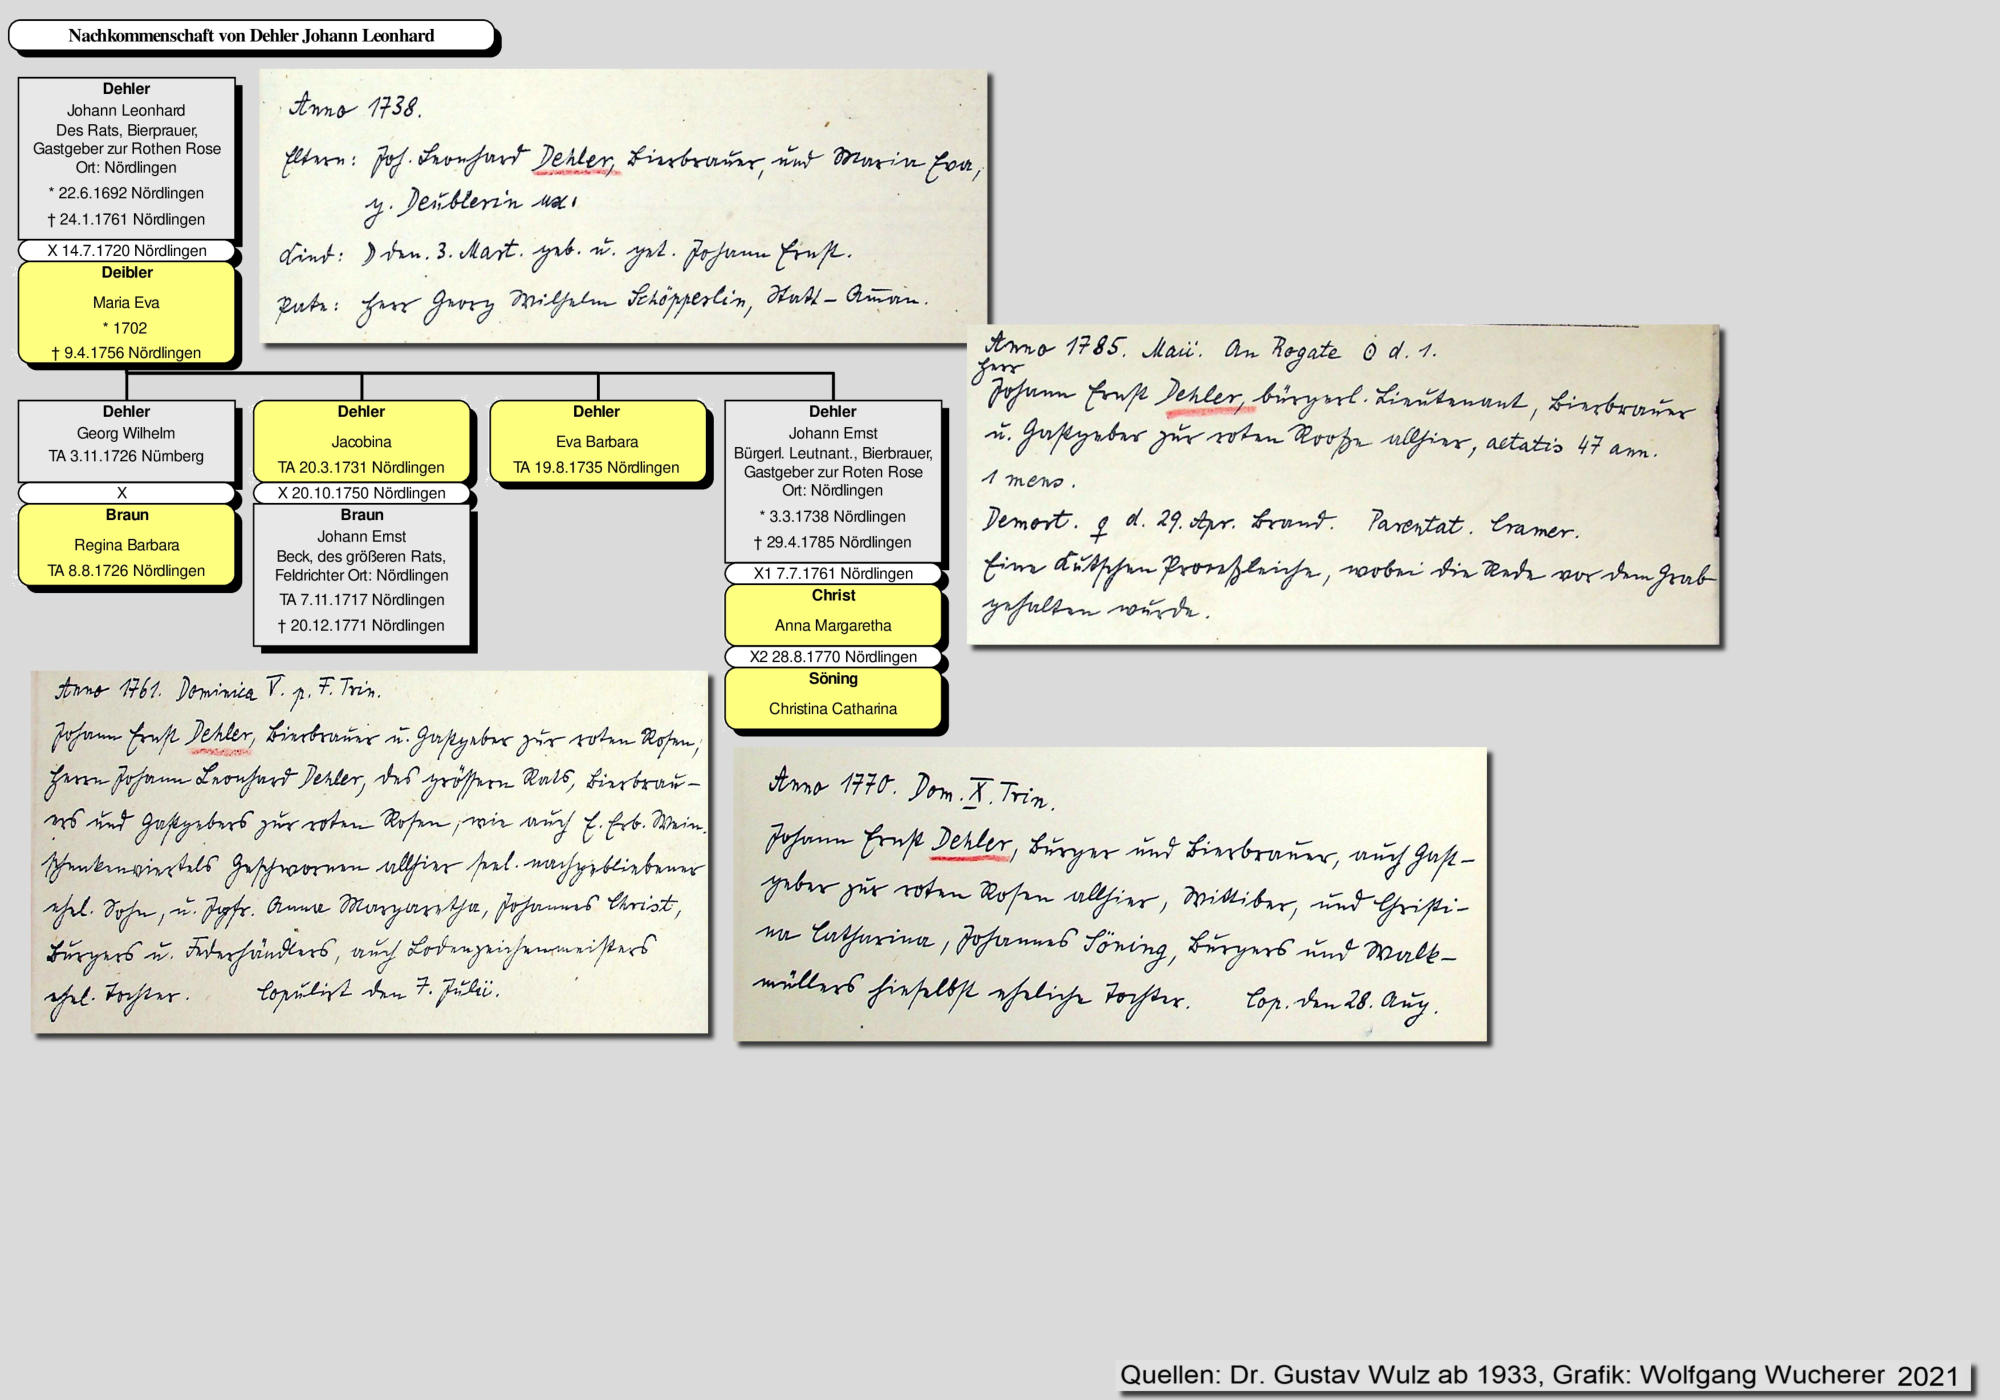 Nachkommenschaft von Dehler Johann Leonhard
Dehler
Johann Leonhard
Des Rats, Bierprauer,
Gastgeber zur Rothen Rose
Ort: Nördlingen
* 22.6.1692 Nördlingen
† 24.1.1761 Nördlingen
X 14.7.1720 Nördlingen
Deibler
Maria Eva
* 1702
† 9.4.1756 Nördlingen
Anno 1738.
Eltern: Joh. Leonhard Dehler, Bierbrauer, und Maria Eva,
g. Deüblerin ux.
Kind: ☽ den. 3. Mart. geb. u. get. Johann Ernst.
Pate: Herr Georg Wilhelm Schöpperlin, Statt-Aman.
Anno 1785. Maii. An Rogate ☉ d. 1.
Herr
Johann Ernst Dehler, bürgerl. Lieutenant, Bierbrauer
u. Gastgeber zur roten Rooße allhier, aetatis 47 ann.
1 mens.
Demort. ♀ d. 29. Apr. Brand. Parentat. Cramer.
Eine Kutschen Proceßleiche, wobei die Rede vor dem Grab
gehalten wurde.
Dehler
Georg Wilhelm
TA 3.11.1726 Nürnberg
X
Braun
Regina Barbara
TA 8.8.1726 Nördlingen
Dehler
Jacobina
TA 20.3.1731 Nördlingen
X 20.10.1750 Nördlingen
Braun
Johann Ernst
Beck, des größeren Rats,
Feldrichter Ort: Nördlingen
TA 7.11.1717 Nördlingen
† 20.12.1771 Nördlingen
Dehler
Eva Barbara
TA 19.8.1735 Nördlingen
Dehler
Johann Ernst
Bürgerl. Leutnant., Bierbrauer,
Gastgeber zur Roten Rose
Ort: Nördlingen
* 3.3.1738 Nördlingen
† 29.4.1785 Nördlingen
X1 7.7.1761 Nördlingen
Christ
Anna Margaretha
X2 28.8.1770 Nördlingen
Söning
Christina Catharina
Anno 1761. Dominica V. p. F. Trin.
Johann Ernst Dehler, Bierbrauer u. Gastgeber zur roten Rosen,
Herrn Johann Leonhard Dehler, des grössern Rats, Bierbrau-
ers und Gastgebers zur roten Rosen, wie auch E. Erb. Wein-
schenkenviertels Geschwornen allhier seel. nachgebliebener
ehel. Sohn, u. Jgfr. Anna Margaretha, Johannes Christ,
Burgers u. Federhändlers, auch Lodenzeichenmeisters
ehel. Tochter. Copuliert den 7. Julii.
Anno 1770. Dom. X. Trin.
Johann Ernst Dehler, Burger und Bierbrauer, auch Gast-
geber zur roten Rosen allhier, Wittiber, und Christi-
na Catharina, Johannes Söning, Burgers und Walk-
müllers hieselbst eheliche Tochter. Cop. den 28. Aug.
Quellen: Dr. Gustav Wulz ab 1933, Grafik: Wolfgang Wucherer 2021